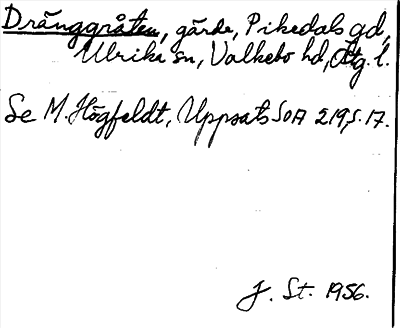 Dränggråten, gärde, Pikedals gd,
Ulrika sn, Valkebo hd, Ötg. l.
Se M. Högfeldt, Uppsats SOA 219, s. 17.
J. St. 1956.